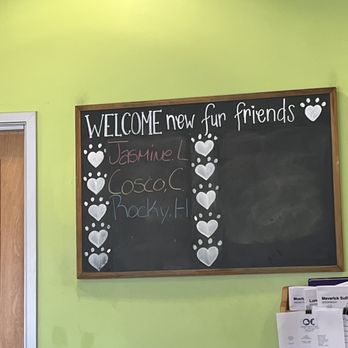 WELCOME new fur friends
Jasmine.L
Cosco,C
Rocky,H
Maverick